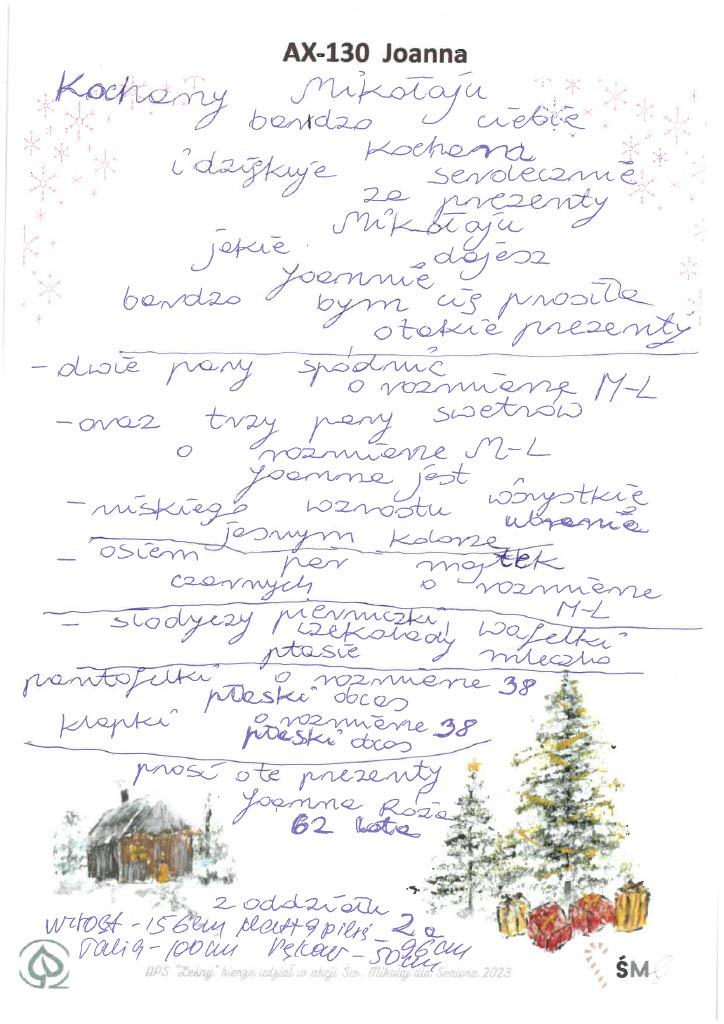 AX-130 Joanna
Kochany Mikołaju
bardzo ciebie
kochana
i dziękuje serdecznie
za prezenty
Mikołaju
jakie dajesz
Joannie
bardzo bym cię prosiła
otakie prezenty
- dwie pary spódnić
o rozmierze M-L
- oraz trzy pary swetrów
o rozmierze M-L
Joanna jest
- niskiego wzrostu wszystkie
ubranie
jasnym kolorze
- osiem par majtek
czarnych o rozmierze
M-L
- słodyczy pierniczki wafelki
czekolady
ptasie mleczko
pantofelki o rozmierze 38
płaski obcas
klapki o rozmierze 38
płaski obcas
prosi ote prezenty
Joanna Róża
62 lata
z oddziału
2a
wzrost - 156cm klatka piersi 96cm
Talia - 100cm Rękaw - 50cm
DPS "Leśny" bierze udział w akcji Św. Mikołaj dla Seniora 2023
ŚM